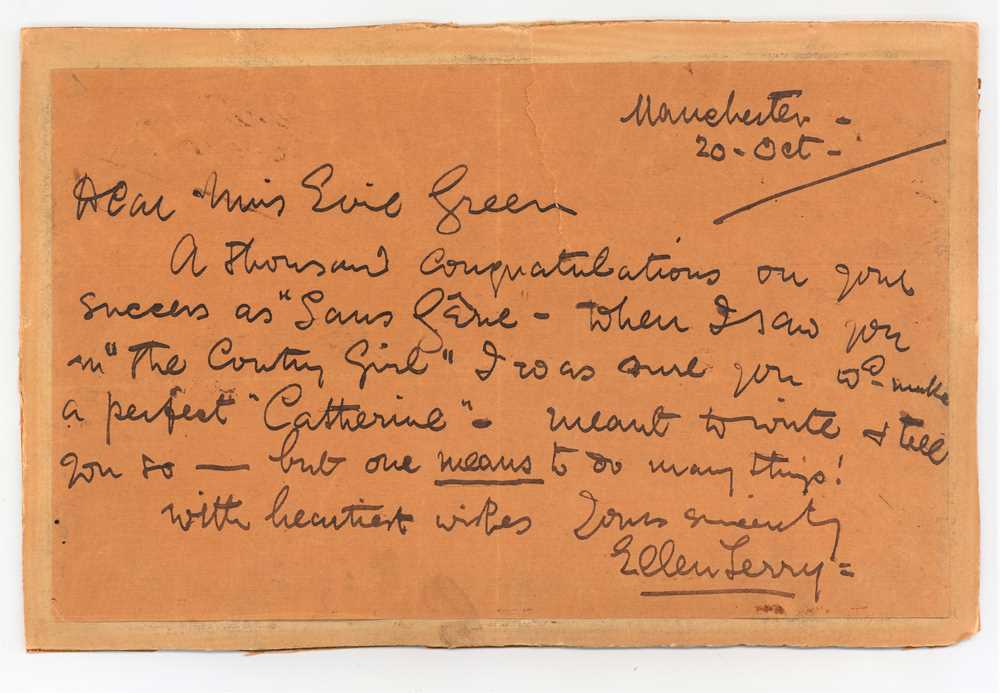 Manchester -
20 - Oct -
Dear Miss Evie Green
A thousand congratulations on your
success as "Sans Gêne - When I saw you
in "The Country Girl" I was sure you wd make
a perfect "Catherine" - meant to write & tell
you so — but one means to do many things!
With heartiest wishes Yours sincerely
Ellen Terry =